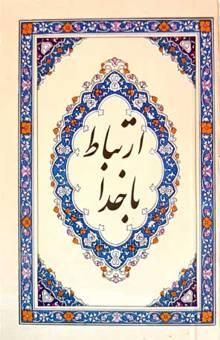 ارتباط
با خدا